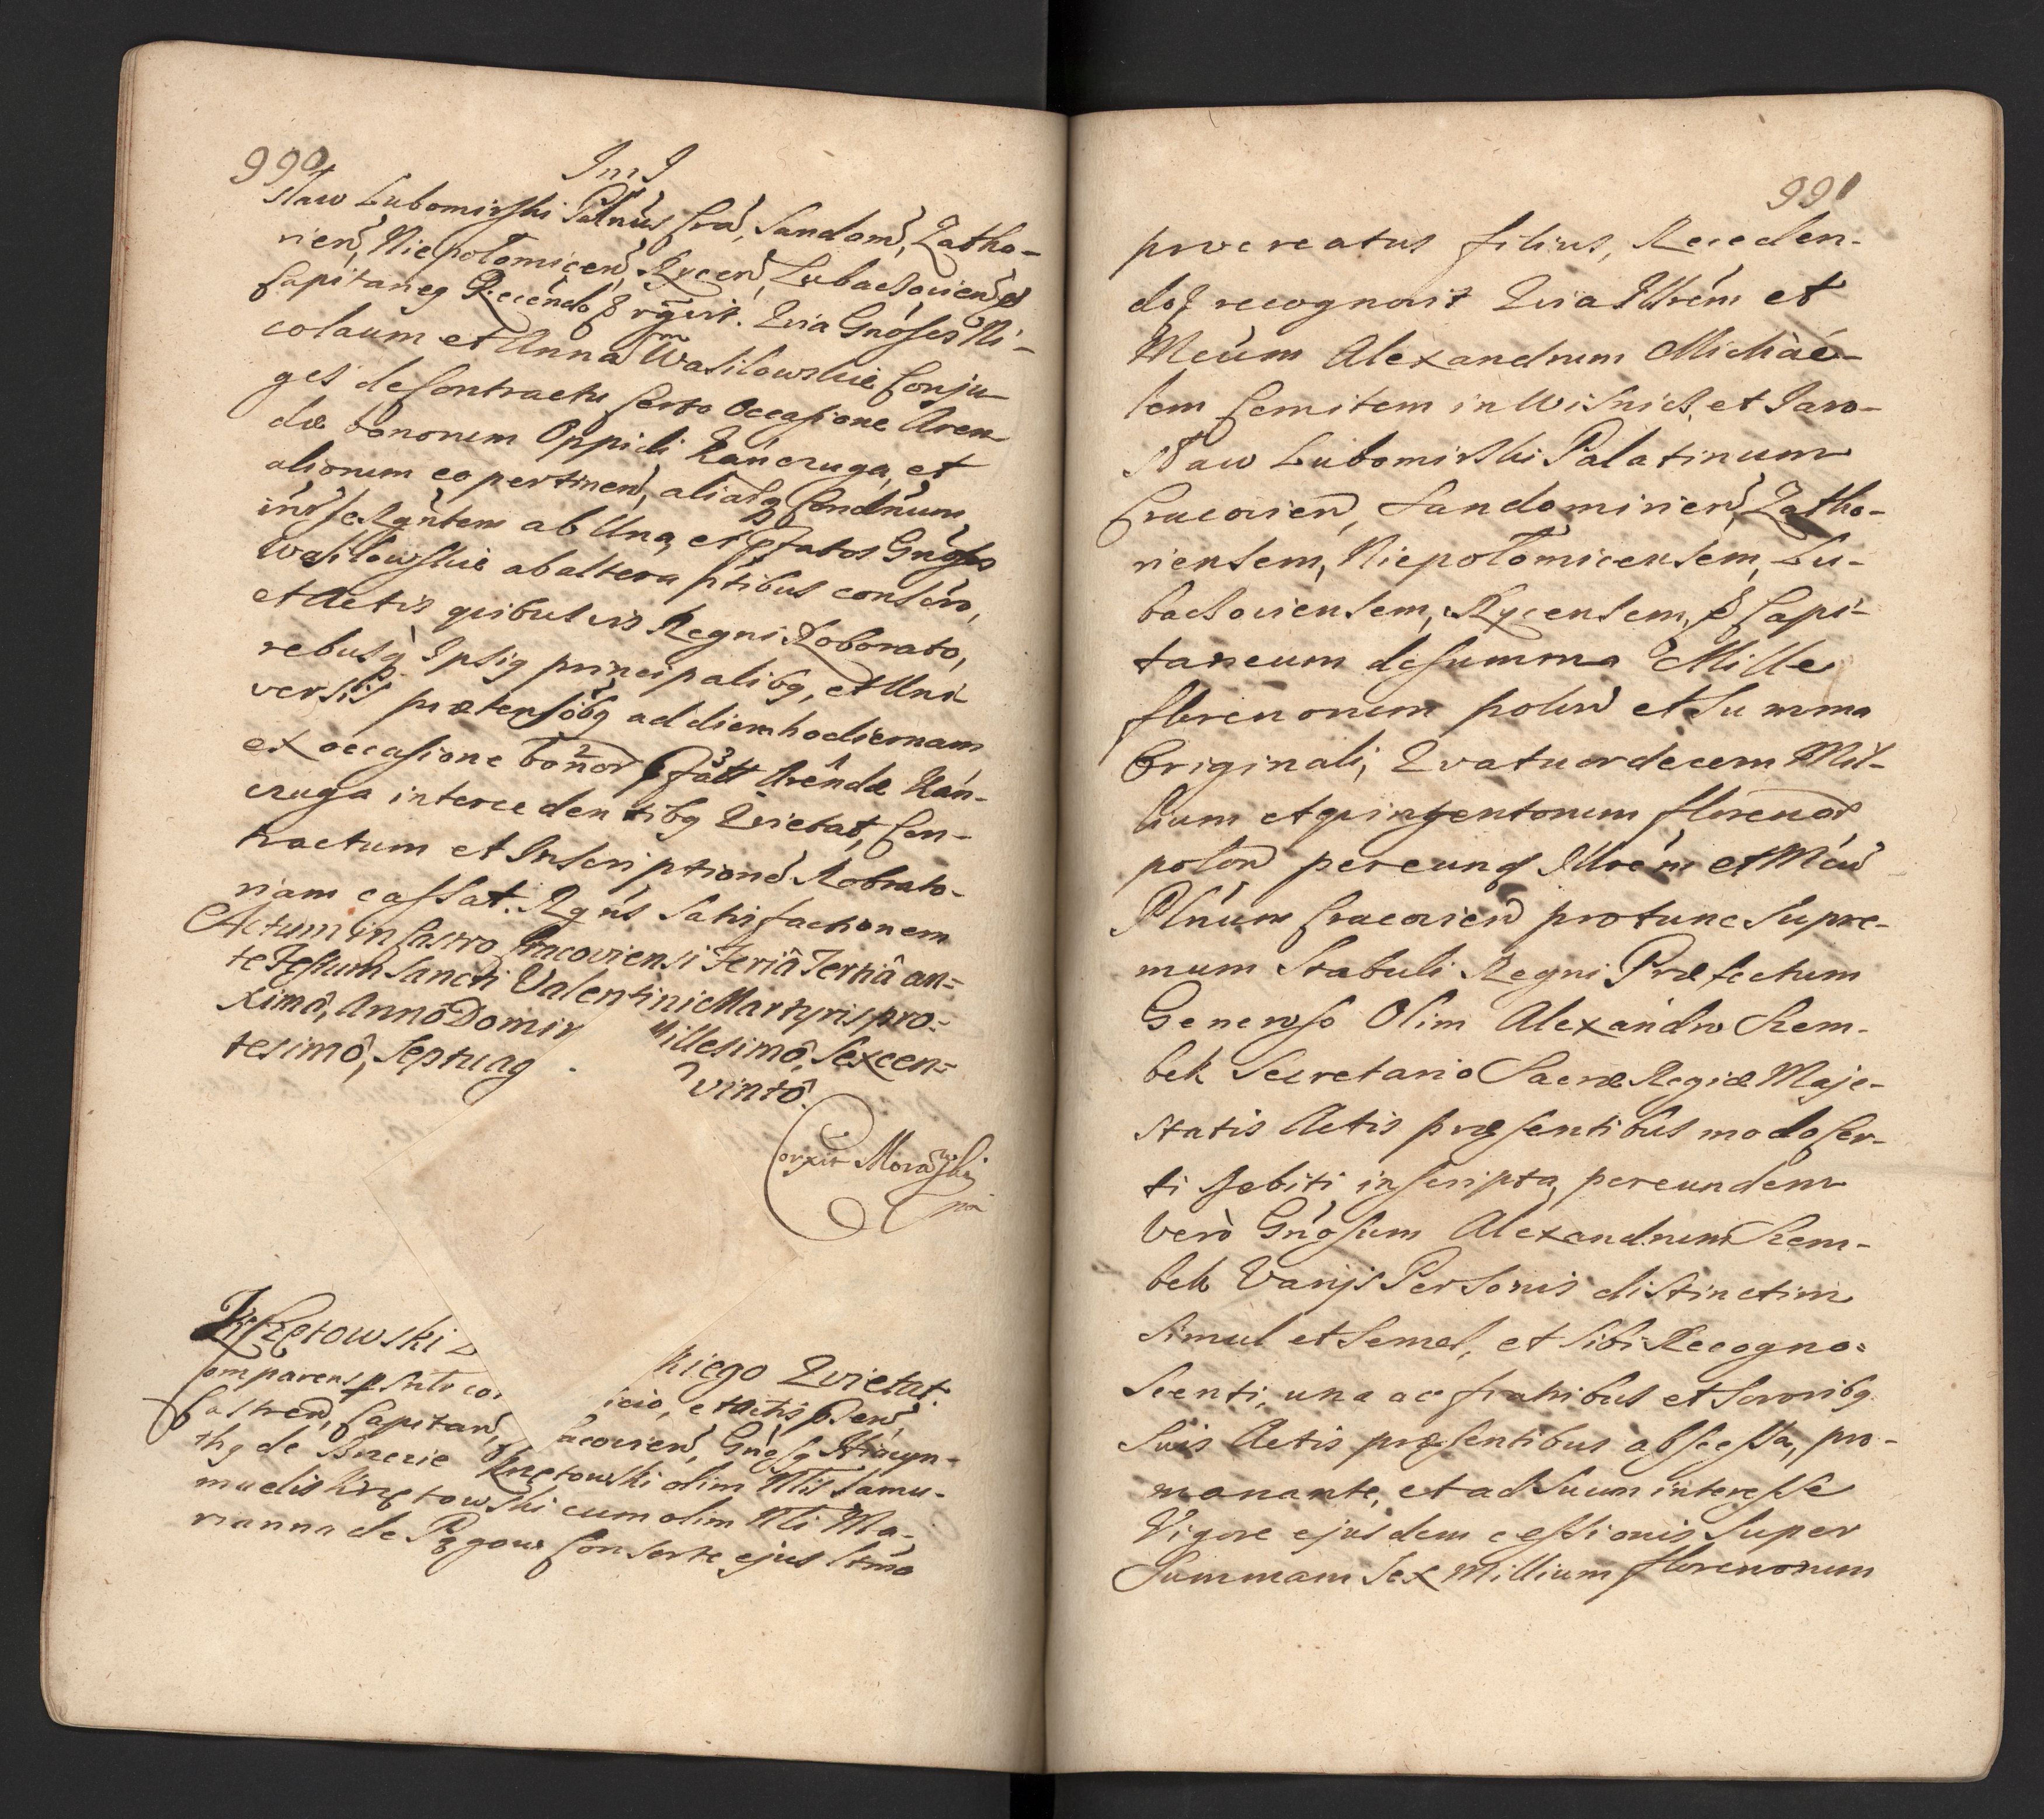 990
J m J
sław Lubomirski Palnus Cra, Sandom, Zatho-
rien, Niepołomicen, Rycen, Lubaczovien et
Capitaneg Recendo rgvit. Quia Gnoses Ni-
colaum et Annam Wasilowskie Conju-
ges de Contractu certo Occasione Aren-
dæ bonorum Oppidi Kanczuga, et
aliorum eo pertinen, aliasq Condnum
inr se Rgntem ab Una, et pfatos Gnoses
Wasilowskie ab altera ptibus conscro,
et Actis quibusvis Regni Roborato,
rebusq Ipsig principalibg, et Uni
versis prætensobg ad diem hodiernam
ex occasione bonor pfatt Arendæ Kan-
czuga intercedentibg Quietat, Con-
tractum et Inscriptione Roborato-
riam cassat. Rgns Satisfactionem
Actum in Castro Cracoviensi Feriâ Tertiâ an=
te Festum Sancti Valentini Martyris pro=
ximâ, Annô Domin Millesimô, Sexcen=
tesimô, Septuag vintô.
Corxit Morawski
mp
Krzetowski L kiego Quietat.
Comparens psnlr co icio, et Actis psen,
Castren, Capitan, acovien, Gnosg Hiacyn-
thg de Brzezie Krzetowski olim Nlis Samu-
muelis Krzetowski cum olim Nli Ma-
rianna de Rzgow Consorte ejus ltma
991
procreatus filius, Receden-
doq recognovit Quia Illrem et
Mcum Alexandrum Michaé-
lem Comitem in Wisnicz, et Jaro-
sław Lubomirski Palatinum
Cracovien, Sandomirien, Zatho-
riensem, Niepołomicensem, Lu-
baczoviensem, Rycensem, & Capi-
taneum de summa Mille
florenorum polon et Summa
Originali, Quatuordecem Mil-
lium et quingentorum florenor
polon per eung Illrem et Mcu
Plnum Cracovien pro tunc Supre-
mum Stabuli Regni Præfectum
Generoso Olim Alexandro Szem-
bek Secretario Sacræ Regiæ Maje-
statis Actis præsentibus modo Cer-
ti debiti inscripta, per eundem
Vero Gnosum Alexandrum Szem-
bek Varijs Personis distinctim
Simul et Semel, et Sibi Recogno=
scenti, una ac fratribus et Sororibg
Suis Actis præsentibus abscessa, pro-
manante, et ad Suum interesse
Vigore ejusdem cessionis Super
Summam Sex Millium florenorum